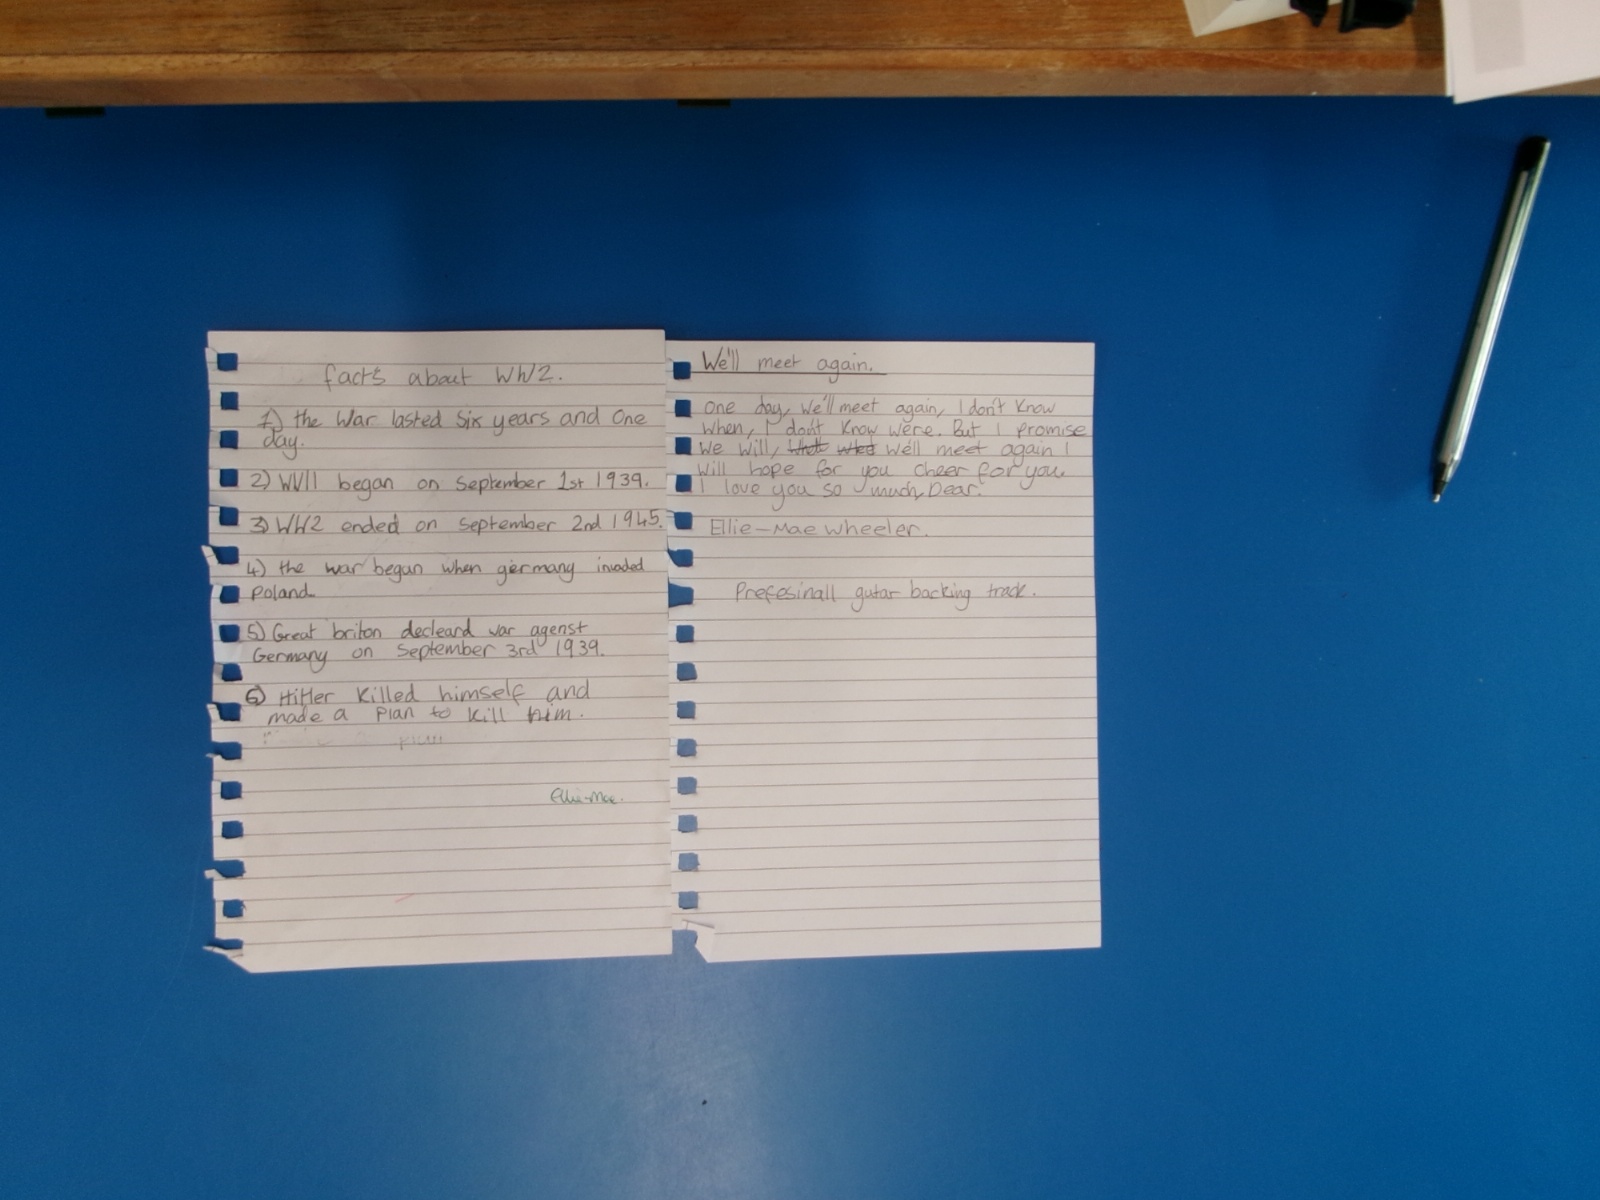 facts about WW2.
1) the War lasted Six years and One
day.
2) WWII began on September 1st 1939.
3) WW2 ended on September 2nd 1945.
4) the war began when germany invaded
Poland
5) Great briton decleard war agenst
Germany on September 3rd 1939.
6) Hitler Killed himself and
made a plan to kill him.
a plan
Ellie-Mae.
We'll meet again.
One day, We'll meet again, I don't Know
When, I don't Know were. But I promise
We will, we'll meet again I
Will hope for you cheer for you.
I love you so much, Dear.
Ellie-Mae wheeler.
Prefesinall gutar backing track.